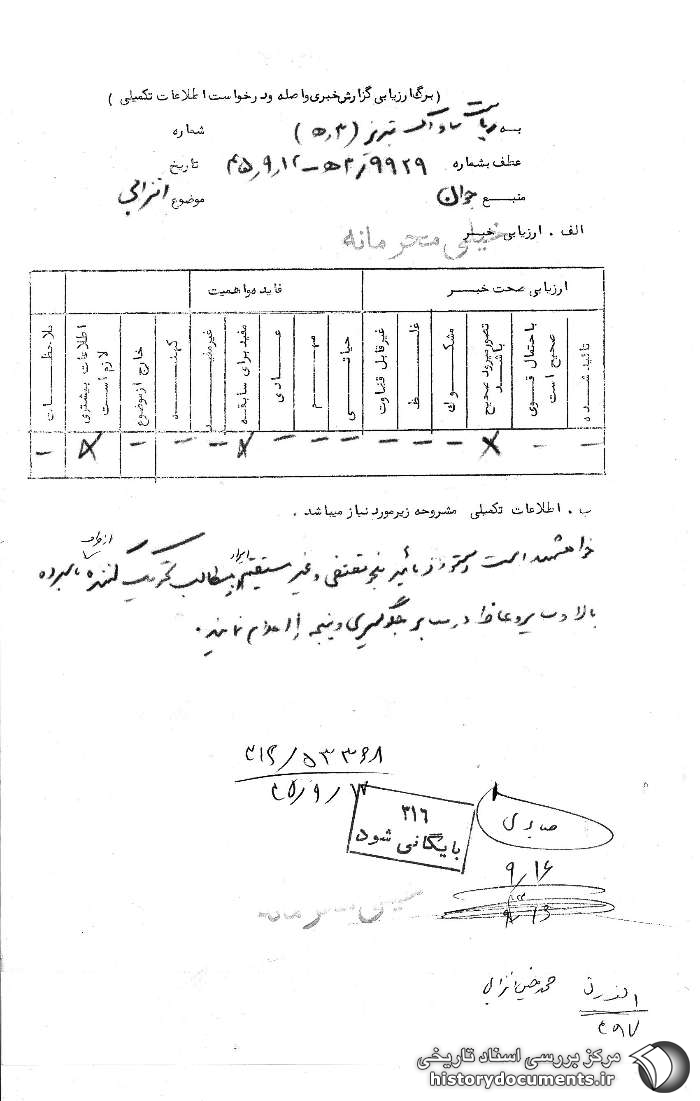 (برگ ارزیابی گزارش خبری واصله و درخواست اطلاعات تکمیلی )
به ریاست ساواک تبریز (۳ﻫ ) شماره
عطف بشماره ۹۹۲۹/ﻫ۳ - ۴۵/۹/۱۲ تاریخ
منبع جوان موضوع انزابی
الف . ارزیابی خبر
خیلی محرمانه
ارزیابی صحت خبر فایده و اهمیت
تائید شده
باحتمال قوی صحیح است
تصور میرود صحیح باشد
مشکوک
غلط
غیرقابل قضاوت
حیاتی
مهم
عادی
مفید برای سابقه
غیرمفید
کهنه
خارج از موضوع
اطلاعات بیشتری لازم است
ملاحظات
- - x - - - - - - x - - - x -
ب . اطلاعات تکمیلی مشروحه زیر مورد نیاز میباشد .
خواهشمند است دستور فرمائید بنحو مقتضی و غیر مستقیم از ایراد مطالب تحریک کننده از طرف نامبرده
بالا و سایر وعاظ در منابر جلوگیری و نتیجه را اعلام نمایند.
۳۱۶/۵۳۳۶۸
۴۵/۹/۱۷
۳۱۶
بایگانی شود
صابری
۹/۱۶
خیلی محرمانه
محمدحسین انزابی
۲۹۷
مرکز بررسی اسناد تاریخی
historydocuments.ir